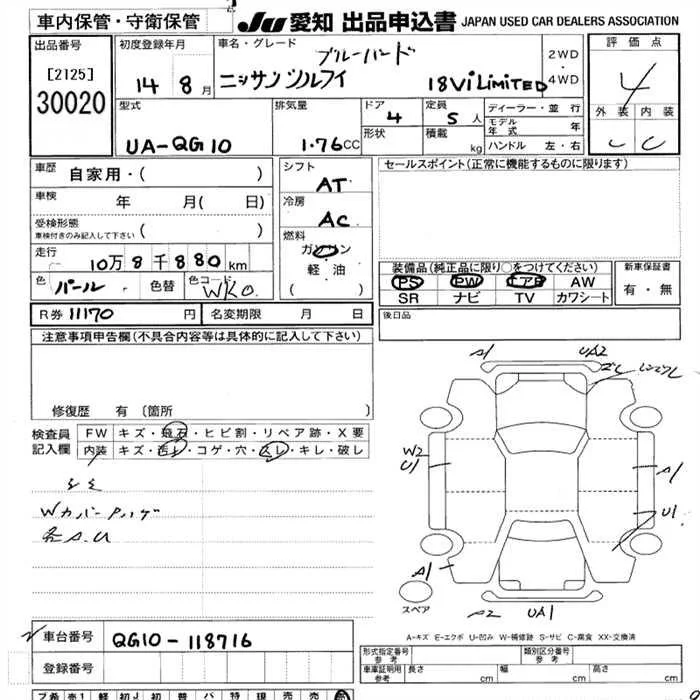 車内保管・守衛保管
JU 愛知 出品申込書 JAPAN USED CAR DEALERS ASSOCIATION
出品番号
[2125]
30020
初度登録年月
14 8月
車名・グレード
ブルーバード
ニッサンシルフィ 18Vi LIMITED
2WD
4WD
評価点
4
外装 内装
C C
型式
UA-QG10
排気量
1.76CC
ドア
4
形状
定員
5人
積載
kg
ディーラー・並行
モデル年式 年
ハンドル 左・右
車歴 自家用・( )
車検 年 月( 日)
受検形態
車検付きのみ記入して下さい ( )
走行
10万8千880km
色 パール 色替 色コード WK0
シフト
AT
冷房
AC
燃料
ガソリン
軽油
( )
セールスポイント(正常に機能するものに限ります)
装備品(純正品に限り○をつけてください)
PS PW エアB AW
SR ナビ TV カワシート
新車保証書
有・無
R券 11170 円 名変期限 月 日
後日品
注意事項申告欄(不具合内容等は具体的に記入して下さい)
修復歴 有〔箇所 〕
検査員記入欄
FW キズ・飛石・ヒビ割・リペア跡・X要
内装 キズ・汚レ・コゲ・穴・スレ・キレ・破レ
Wカバー
各A.U
A1 UA2
W2
U1
A1
U1
A1
UA1
スペア
A-キズ E-エクボ U-凹み W-補修跡 S-サビ C-腐食 XX-交換済
車台番号 QG10-118716
登録番号
形式指定番号 参考
類別区分番号 参考
車庫証明用 参考 長さ cm 幅 cm 高さ cm